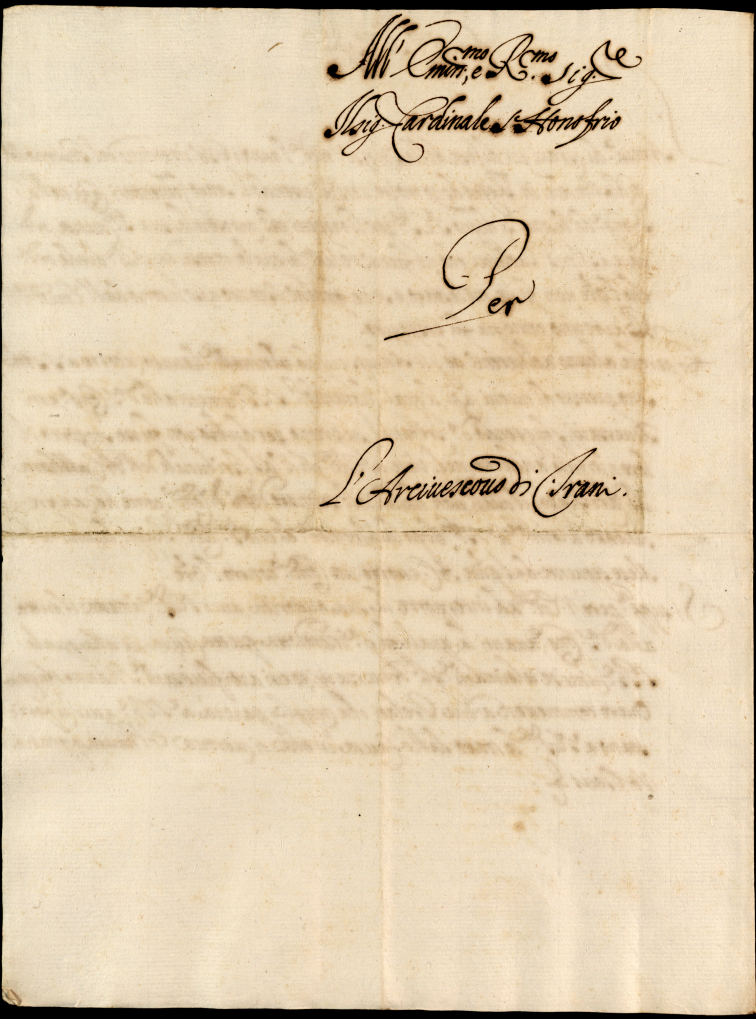 All' Emin:mo, e R.mo Sig.re
Il Sig. Cardinale S. Honofrio
Per
L'Arciuescouo di Trani.